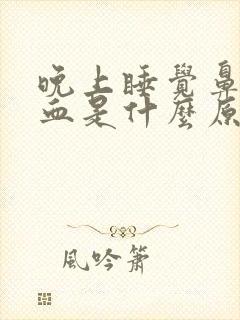 晚上睡覺鼻
血是什麼原
風吟簫